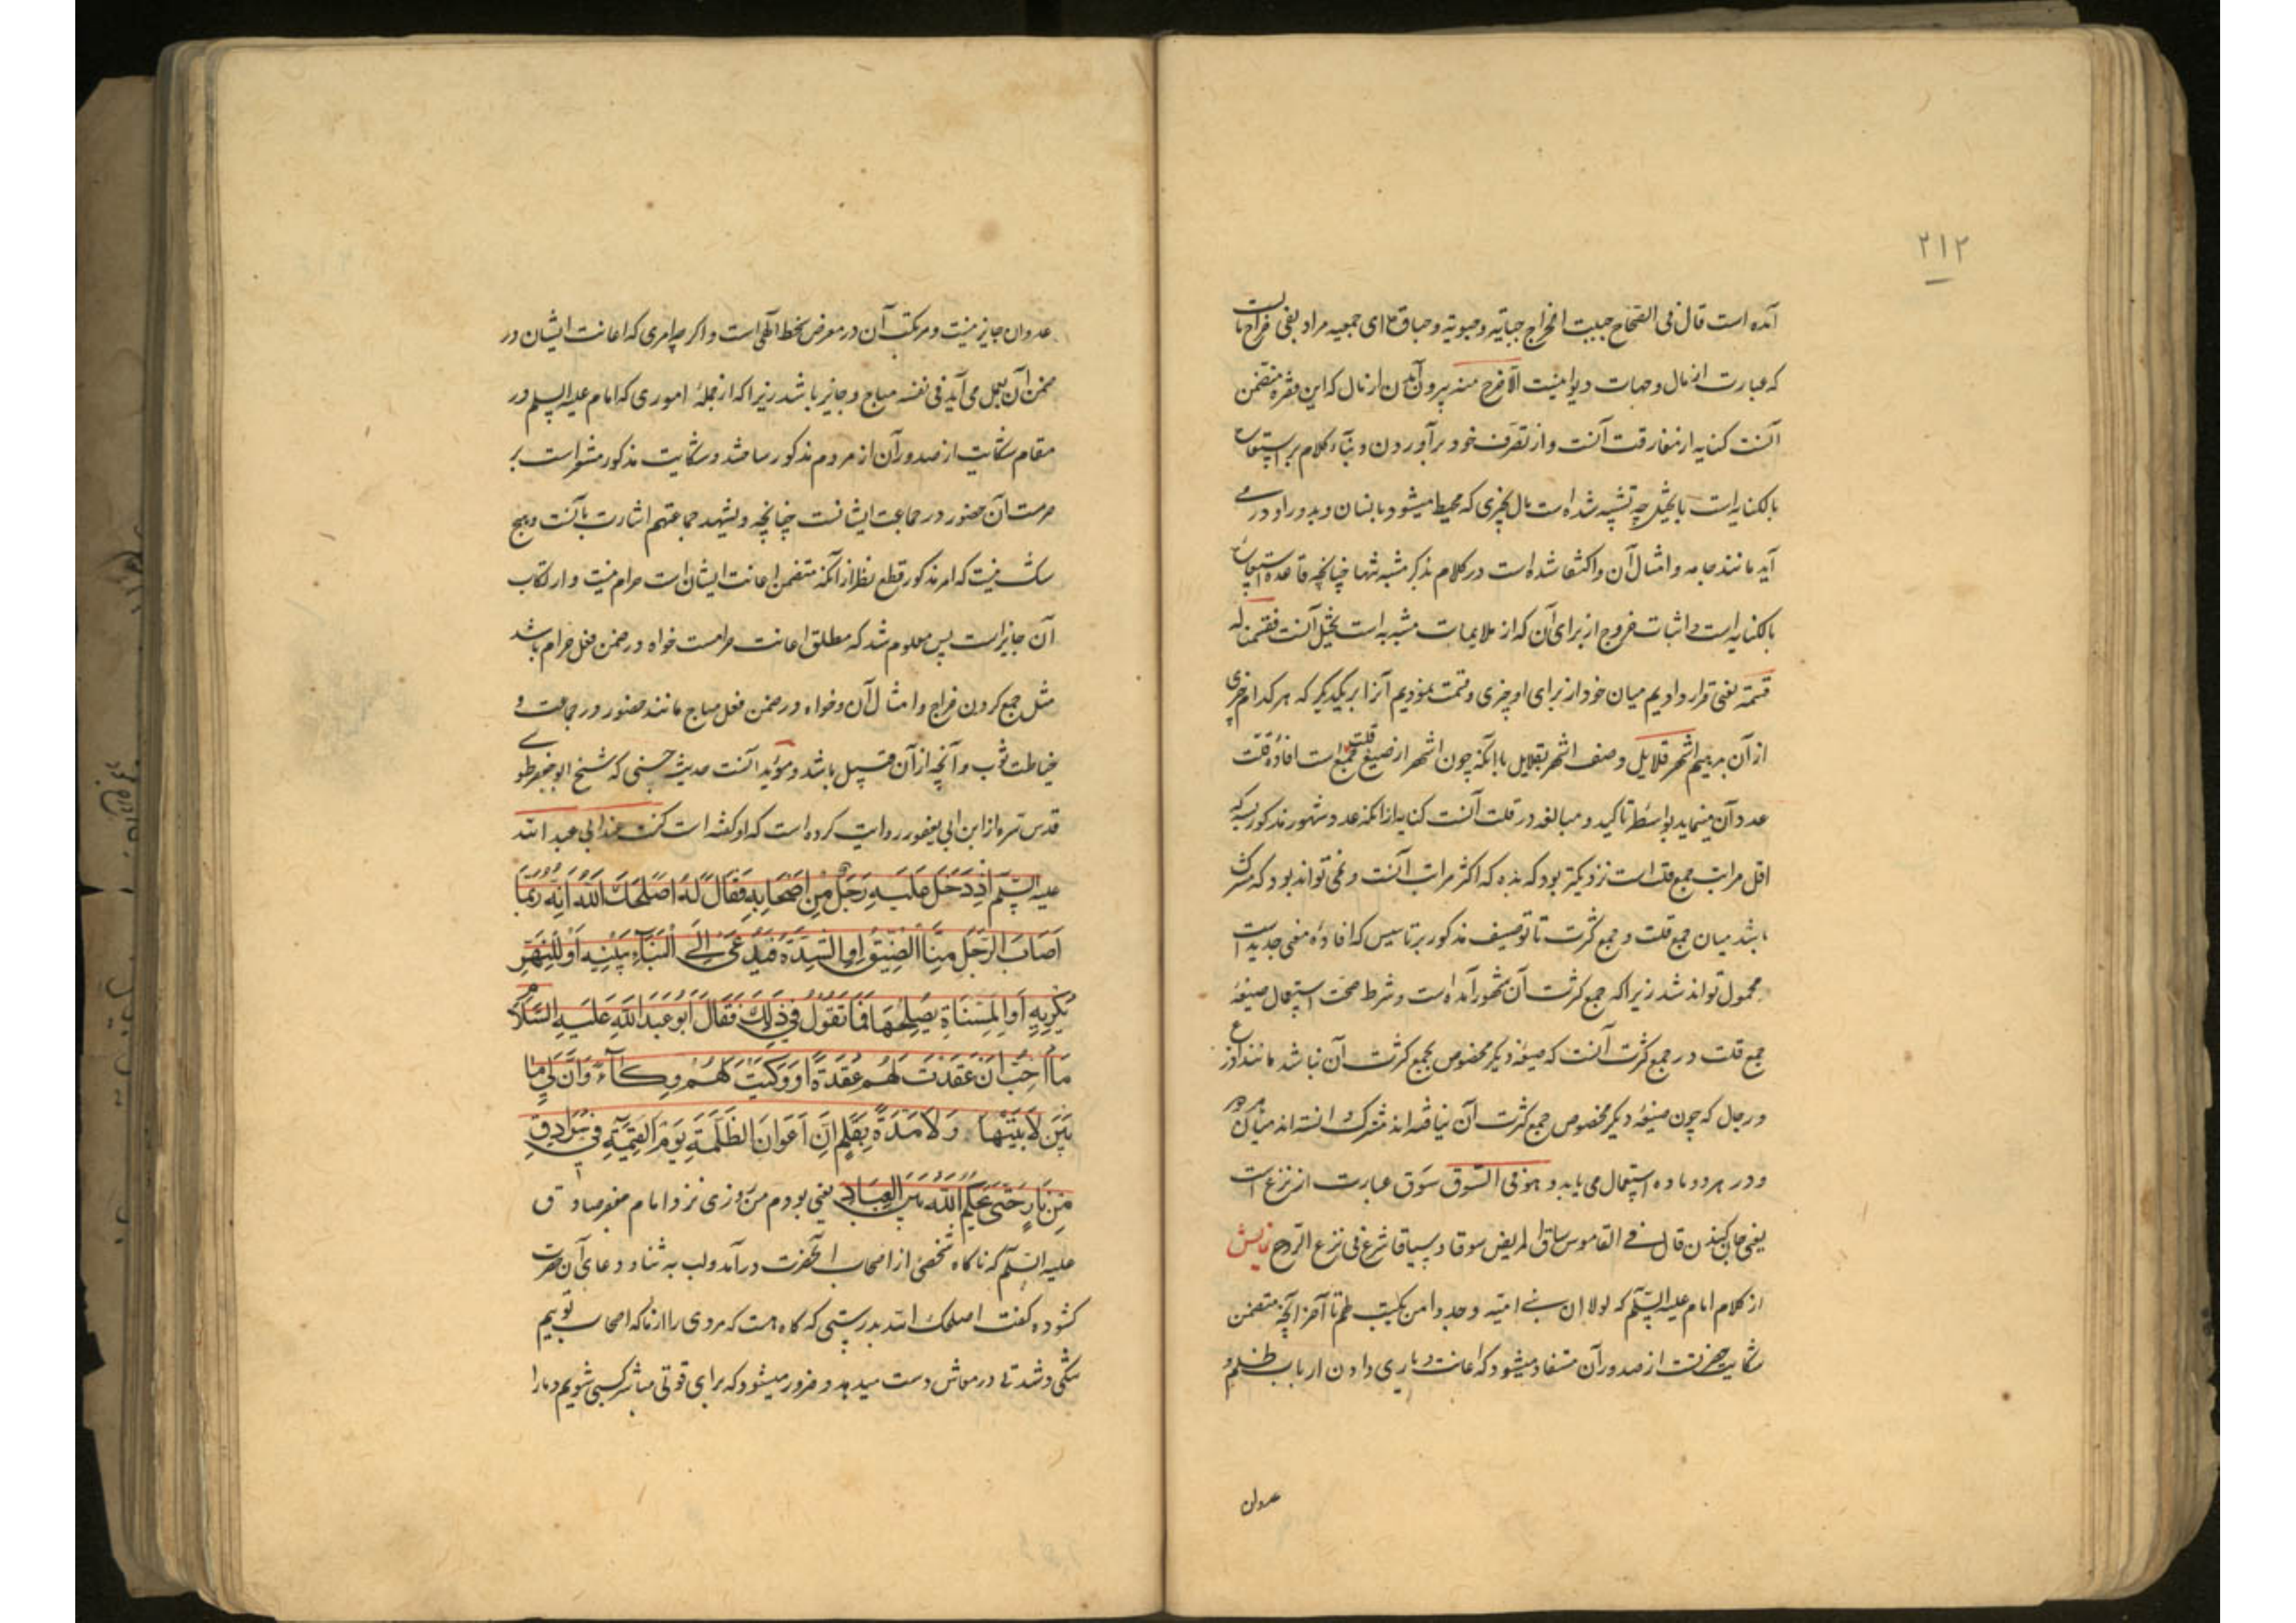 ۲۱۲
آمده است قال فی الصحاح جبیت الخراج جبایة وجبوته وجباوة ای جمعیه مراد یعنی خراجهاست
که عبارت از مال و جهات دیوانیست الا فرج منه بیرون آمدن از مال که این فقره متضمن
آنست کنایه از مفارقت آنست و از تصرف خود برآوردن و بناء کلام بر استعاره
بالکنایه است با تخییل چه تشبیه شده است مال بچیزی که محیط میشود بانسان و بدور او در می
آید مانند جامه و امثال آن و اکتفا شده است در کلام بذکر مشبه تنها چنانچه قاعده استعاره
بالکنایه است و اثبات خروج از برای آن که از ملایمات مشبه به است تخییل آنست فقسمنا له
قسمة یعنی قرار دادیم میان خود از برای او چیزی و قسمت نمودیم آنرا بر یکدیگر که هر کدام چیزی
از آن بدهیم اشهر قلایل وصف اشهر بقلایل با آنکه چون اشهر از صیغ جمع قلت است افاده قلت
عدد آن مینماید بواسطه تاکید و مبالغه در قلت آنست کنایه از انکه عدد شهور مذکور بسه که
اقل مراتب جمع قلت است نزدیکتر بود که بده که اکثر مراتب آنست و نمی تواند بود که مشترک
باشد میان جمع قلت و جمع کثرت تا توصیف مذکور بر تاسیس که افاده معنی جدید است
محمول تواند شد زیرا که جمع کثرت آن شهور آمده است و شرط صحت استعمال صیغه
جمع قلت در جمع کثرت آنست که صیغه دیگر مخصوص بجمع کثرت آن نباشد مانند اذرع
و رجل که چون صیغه دیگر مخصوص جمع کثرت آن نیافته اند مشترک دانسته اند میان هر دو
و در هر دو ماده استعمال می یابد و هو فی السوق سوق عبارت از نزع است
یعنی جان کندن قال فی القاموس ساق المریض سوقا و سیاقا شرع فی نزع الروح نمایش
از کلام امام علیه السلم که لولا ان بنی امیة وجدوا من یکتب لهم تا آخر آنچه متضمن
شکایت حضرتست از صدور آن مستفاد میشود که اعانت و یاری دادن ارباب ظلم و
عدوان
عدوان جایز نیست و مرتکب آن در معرض سخط الهی است و اگر چه امری که اعانت ایشان در
ضمن آن بعمل می آید فی نفسه مباح و جایز باشد زیرا که از جمله اموری که امام علیه السلم در
مقام شکایت از صدور آن از مردم مذکور ساخته و شکایت مذکور مشعر است بر
حرمت آن حضور در جماعت ایشانست چنانچه و یشهد جماعتهم اشارت بآنست و هیچ
شک نیست که امر مذکور قطع نظر از آنکه متضمن اعانت ایشان است حرام نیست و ارتکاب
آن جایز است پس معلوم شد که مطلق اعانت حرامست خواه در ضمن فعل حرام باشد
مثل جمع کردن خراج و امثال آن و خواه در ضمن فعل مباح مانند حضور در جماعت و
خیاطت ثوب و آنچه از آن قبیل باشد و مؤید آنست حدیث حسنی که شیخ ابو جعفر طوسی
قدس سره از ابن ابی یعفور روایت کرده است که او گفته است کنت عند ابی عبد الله
علیه السلم اِذ دَخَلَ عَلَیهِ رَجُلٌ مِن اَصحابِهِ فَقالَ لَهُ اَصلَحَکَ اللهُ اَنِّهُ رُبَّمَا
اَصابَ الرَّجُلَ مِنَّا الضِّیقُ اَوِ الشِّدَّةُ فَیُدعَیٰ اِلَی البَنَاءِ یَبنیهِ اَو لِلنَّهَرِ
یَکرِیهِ اَوِ المُسَنّاةِ یُصلِحُها فَما تَقُولُ فی ذٰلِکَ فَقالَ اَبو عَبدِ اللهِ عَلَیهِ السَّلامُ
مَا اُحِبُّ اَنّی عَقَدتُ لَهُم عُقدَةً اَو وَکَیتُ لَهُم وِکاءً وَاَنَّ لی ما
بَینَ لابَتَیها وَلا مَدَّةً بِقَلَمٍ اِنَّ اَعوانَ الظَّلَمَةِ یَومَ القِیمَةِ فی سُرادِقٍ
مِن نارٍ حَتّی یَحکُمَ اللهُ بَینَ العِبادِ یعنی بودم من روزی نزد امام جعفر صادق
علیه السلم که ناگاه شخصی از اصحاب آنحضرت درآمد و لب به ثنا و دعای آن حضرت
گشوده گفت اصلحک الله بدرستی که گاه هست که مردی را از ما که اصحاب توییم
تنگی و شدتی در معاش دست میدهد و ضرور میشود که برای قوتی مباشر کسبی شویم و ما را